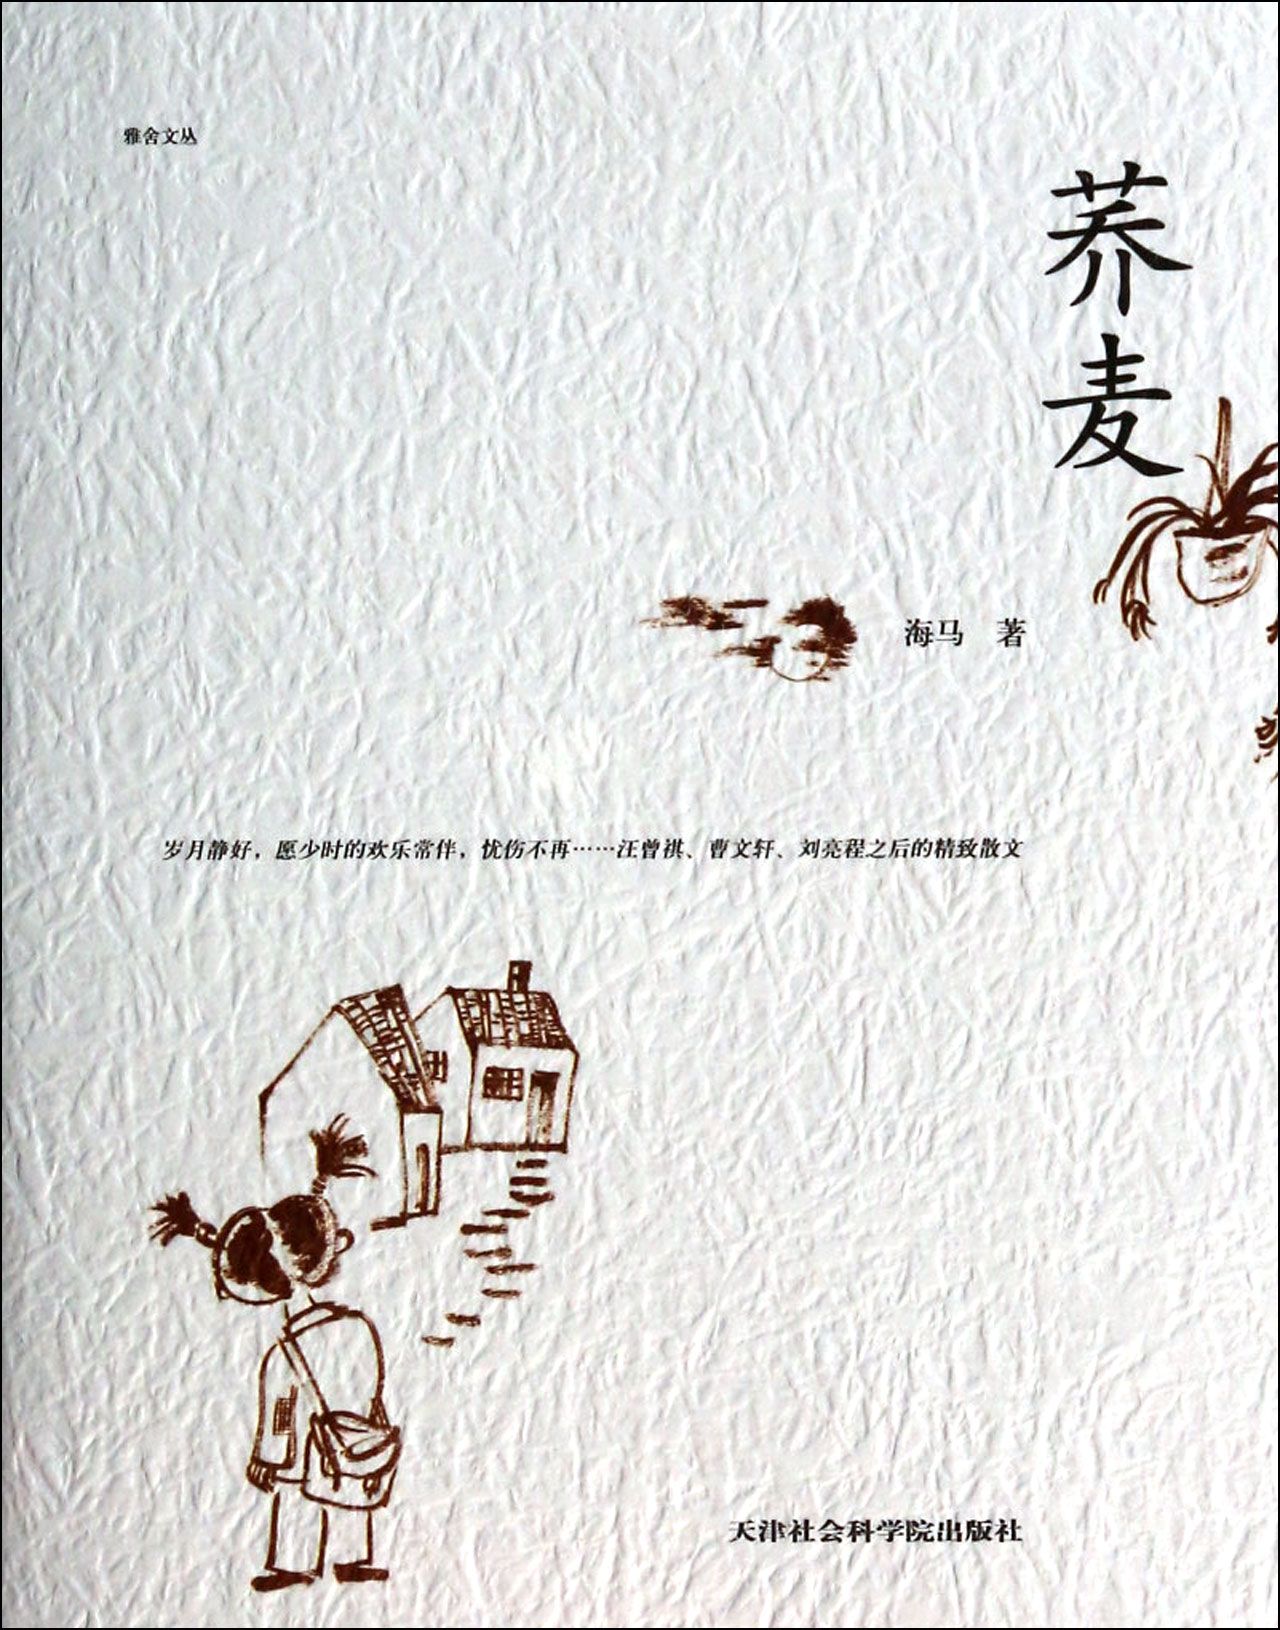 雅舍文丛
荞麦
海马 著
岁月静好，愿少时的欢乐常伴，忧伤不再……汪曾祺、曹文轩、刘亮程之后的精致散文
天津社会科学院出版社